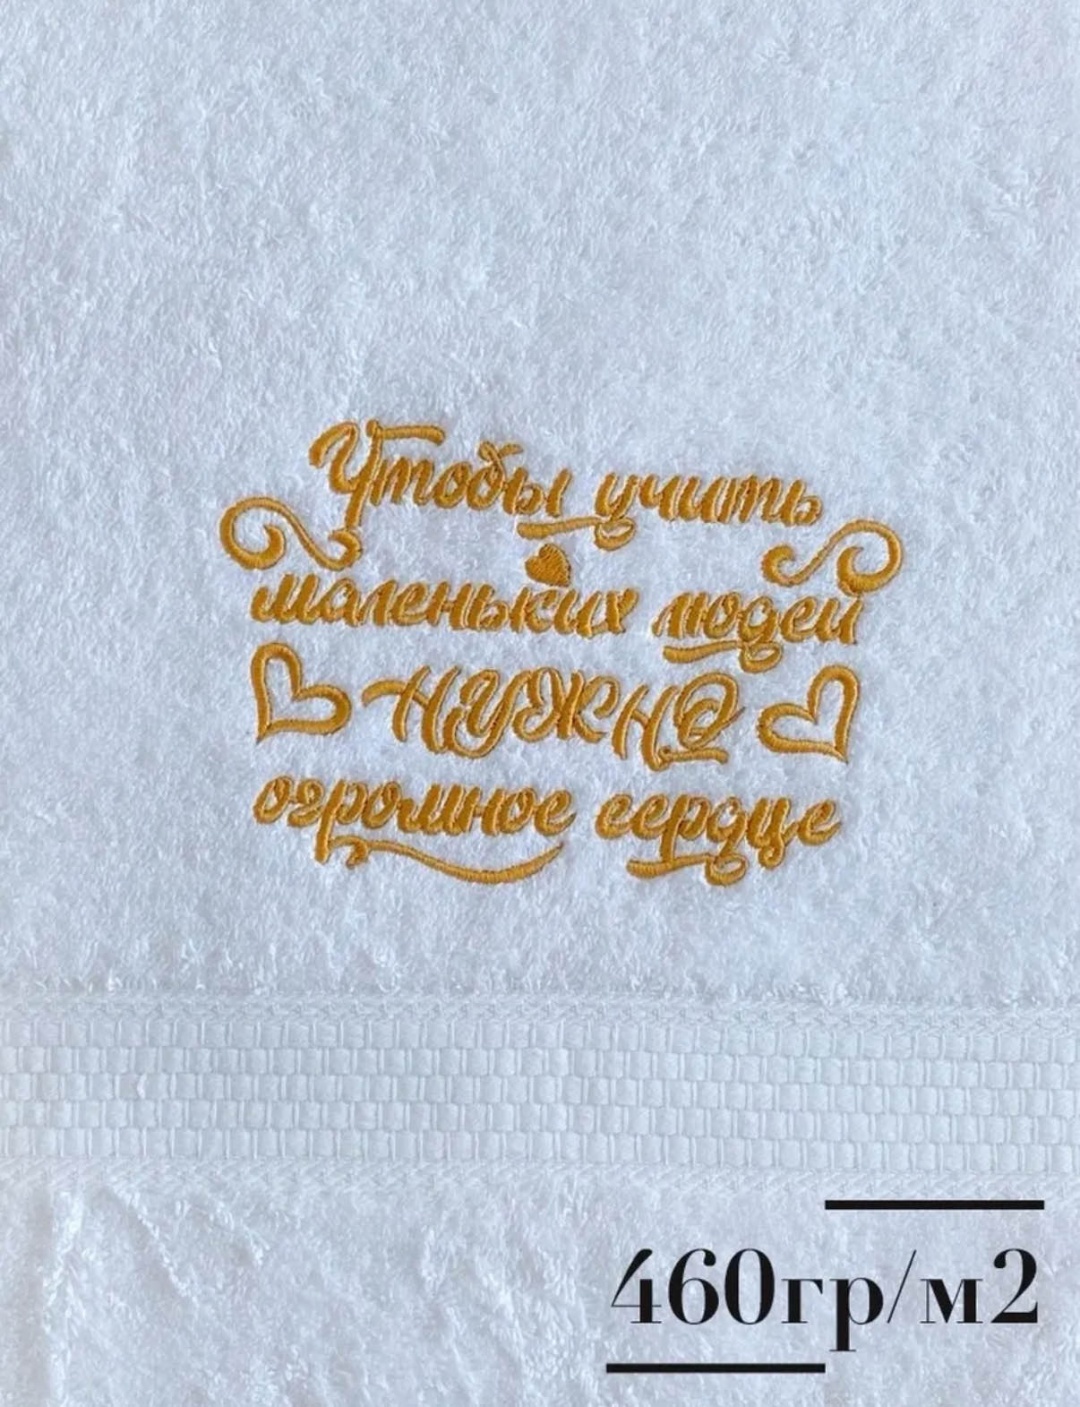 Чтобы учить
маленьких людей
НУЖНО
огромное сердце
460гр/м2